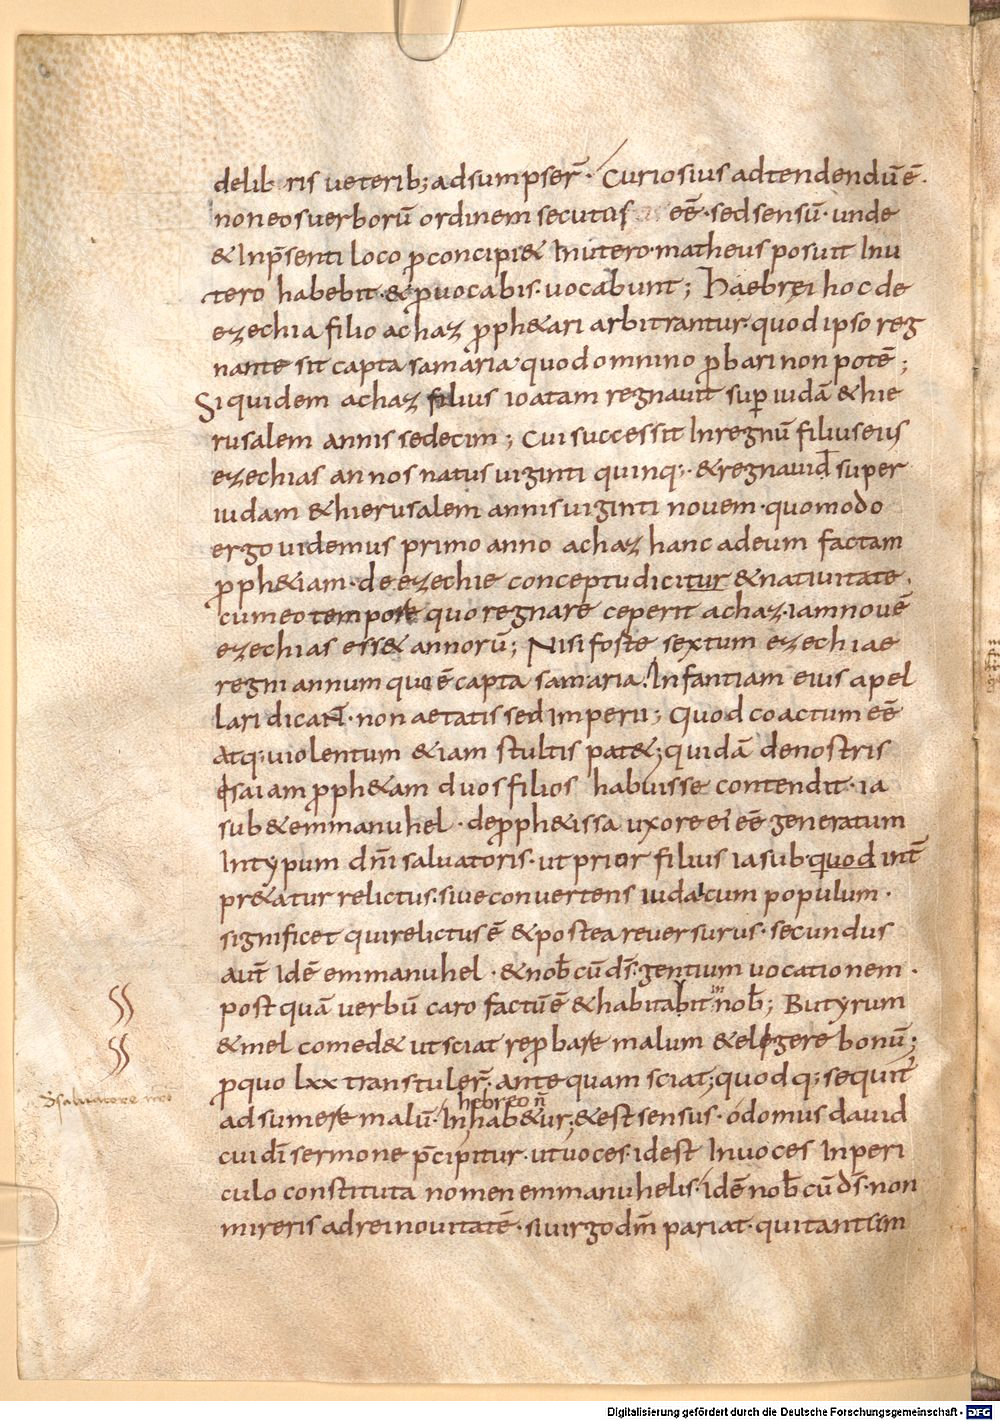 delib ris ueterib; adsumpser̄. Curiosius adtendendū ē.
non eos uerborū ordinem secutus eē. sed sensū. unde
& In p̄senti loco p̱concipi& In utero. matheus posuit In u
tero habebit. & p̱uocabis. uocabunt; Haebrei hoc de
ezechia filio achaz p̱ph&ari arbitrantur. quod ipso reg
nante sit capta samaria. quod omnino p̱bari non potē;
Siquidem achaz filius ioatam regnauit sup̱ iudā & hie
rusalem annis sedecim; Cui successit In regnū filius eius
ezechias annos natus uiginti quinq;. & regnauid super
iudam & hierusalem annis uiginti nouem. quomodo
ergo uidemus primo anno achaz hanc ad eum factam
p̱ph&iam. de ezechie conceptu dicitur & natiuitate.
cum eo tempore quo regnare ceperit achaz. iam nouē
ezechias ess& annorū; Nisi forte sextum ezechiae
regni annum quo ē capta samaria. Infantiam eius apel
lari dicant̄. non aetatis sed Imperii; Quod coactum eē
atq; uiolentum &iam stultis pat&; quidā de nostris
Isaiam p̱ph&am duos filios habuisse contendit. ia
sub & emmanuhel. de p̱ph&issa uxore ei' eē generatum
In typum dn̄i saluatoris. ut prior filius iasub. quod int̄
pr&atur relictus. siue conuertens iudaicum populum.
significet qui relictus ē & postea reuersurus. secundus
aut̄ Idē emmanuhel. & nob̄ cū ds̄. gentium uocationem.
post quā uerbū caro factū ē & habitabit in nob̄; Butyrum
& mel comed& ut sciat rep̱bare malum & eligere bonū;
p̱ quo lxx transtuler̄. ante quam sciat; quod q; sequit̄
hebreo n̄
adsumere malū. In hab&ur; & est sensus. o domus dauid
cui dī sermone p̄cipitur. ut uoces. id est Inuoces In peri
culo constituta nomen emmanuhelis. Idē nob̄ cū ds̄. non
mireris ad rei nouitatē. si uirgo dm̄ pariat. qui tantum
Digitalisierung gefördert durch die Deutsche Forschungsgemeinschaft - DFG